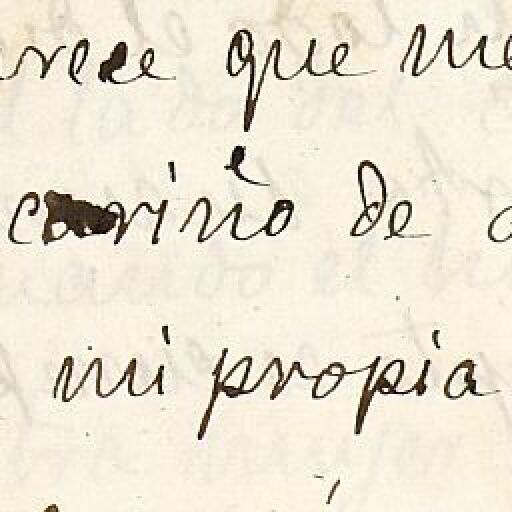 que me
cariño de
mi propia